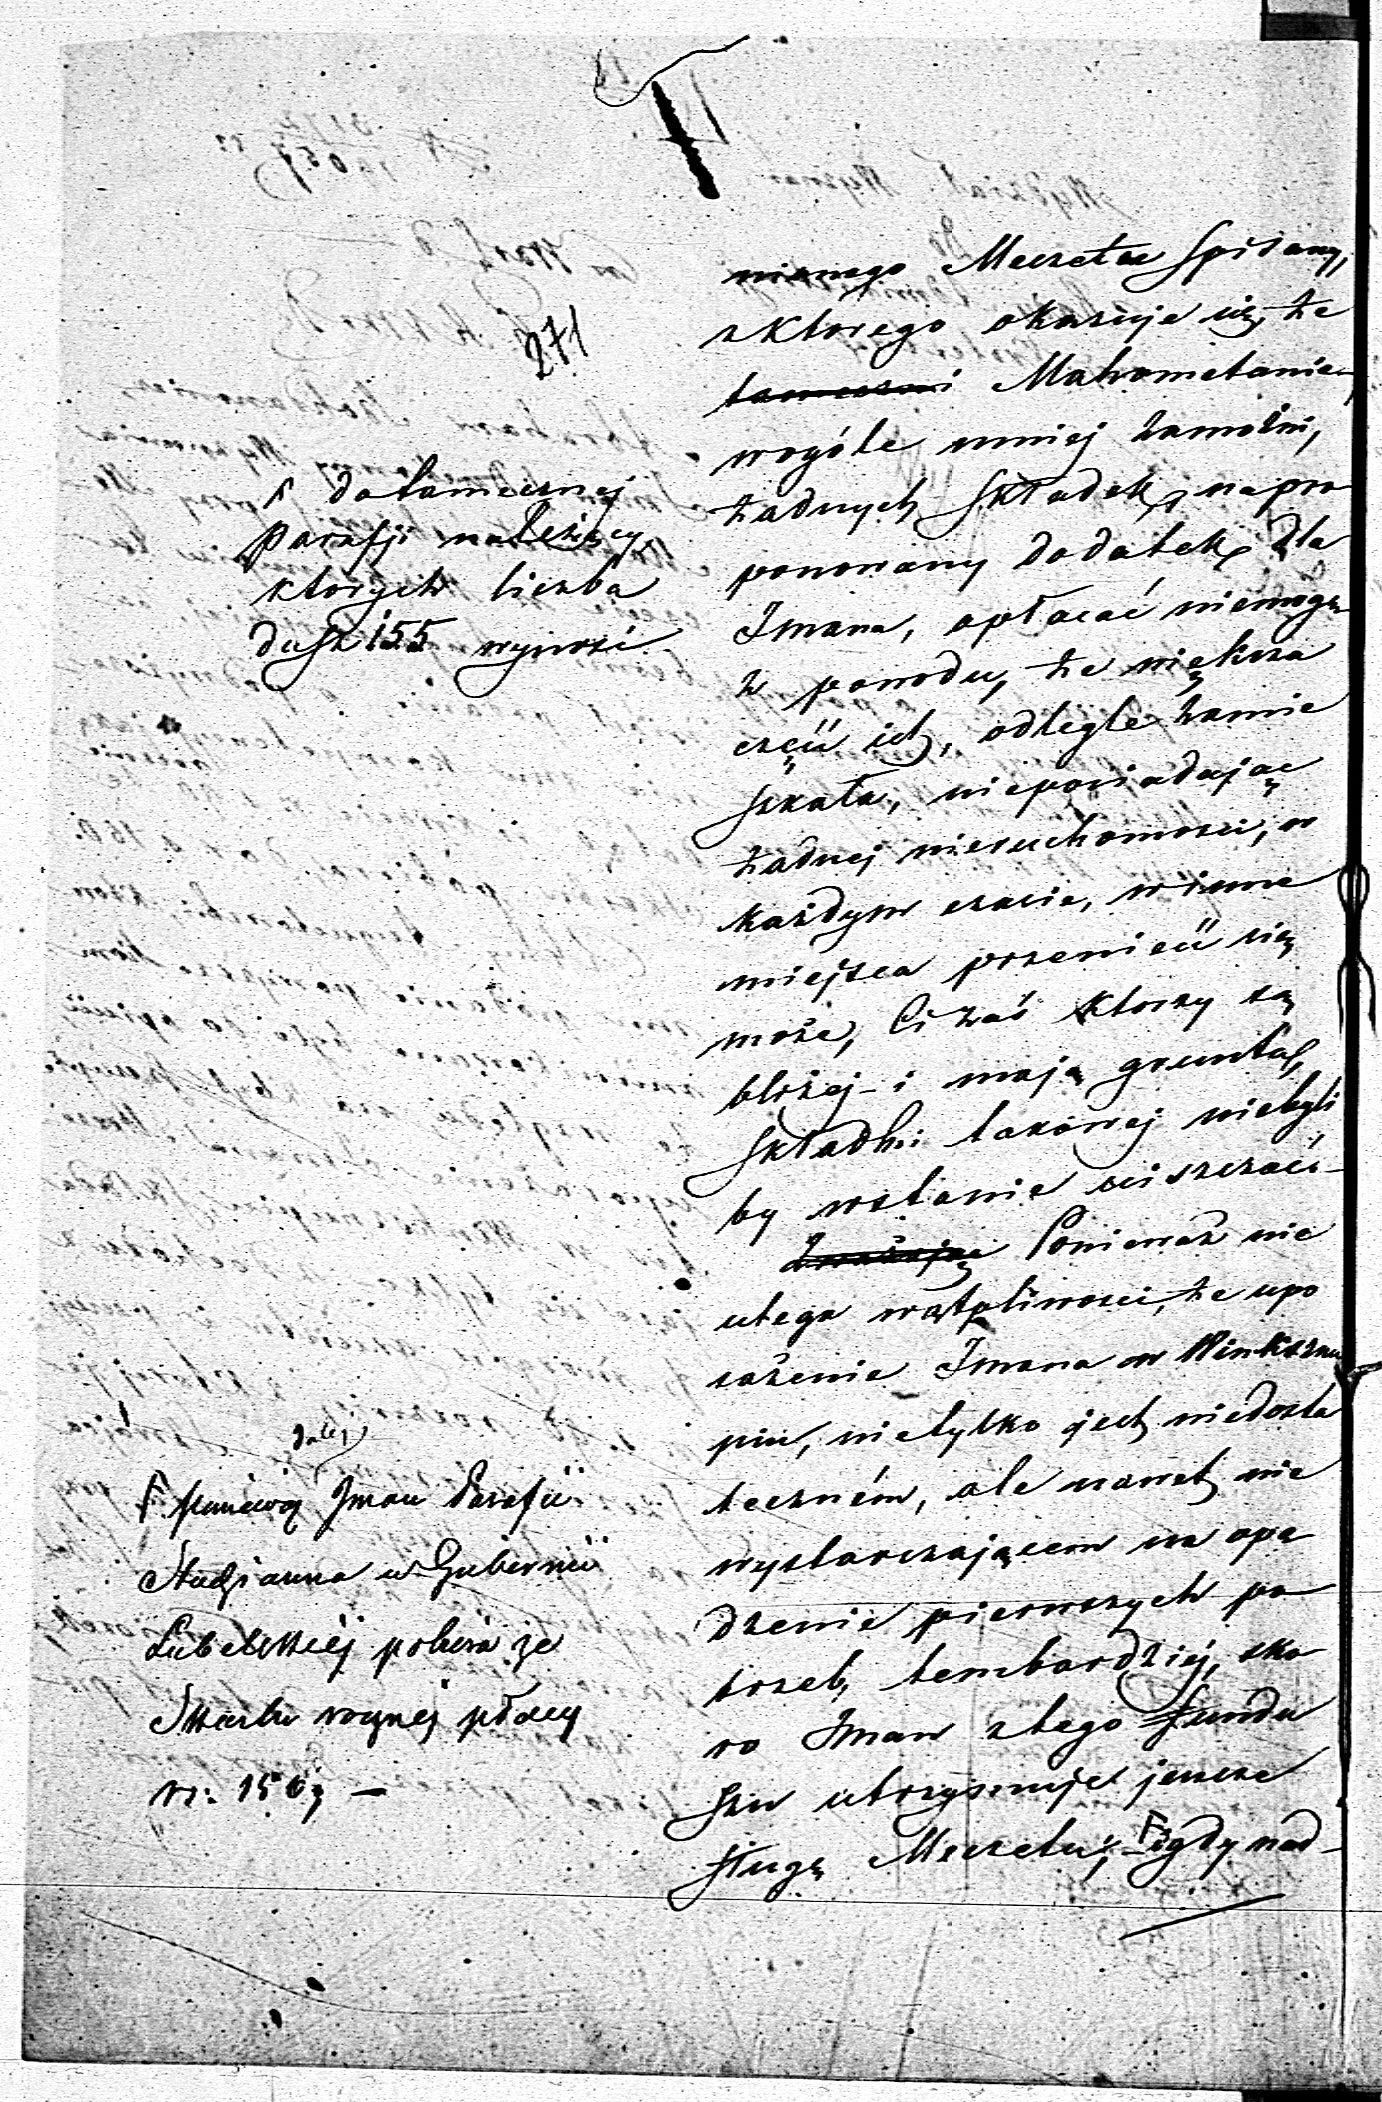 271
nionego Meczetu Spisany,
z którego okazuje się, że
tameczni Mahometanie,
wogóle mniej zamożni,
żadnych Składek, na pro
ponowany dodatek dla
Imana, opłacać niemogą
z powodu, że większa
część ich, odległe zamie
szkała, nieposiadając
żadnej nieruchomości, w
każdym czasie, w inne
miejsca przenieść się
może, Ci zaś którzy są
bliżej i mają grunta,
Składki takowej niebyli
by wstanie uiszczać
Zważając Ponieważ nie
ulega wątpliwości, że upo
sażenie Imana w Winksznu
piu, nietylko jest niedosta
teczném, ale nawet nie
wystarczającem na opę
dzenie pierwszych po
trzeb, tembardziej, sko
ro Iman z tego fundu
szu utrzymuje jeszcze
sługę Meczetu; gdy nad
do tamecznej
Parafji należący,
których liczba
dusz 155 wynosi
dalej
ponieważ Iman Parafii
Studzianna w Gubernii
Lubelskiéj pobiera ze
Skarbu rocznéj płacy
rs: 150,